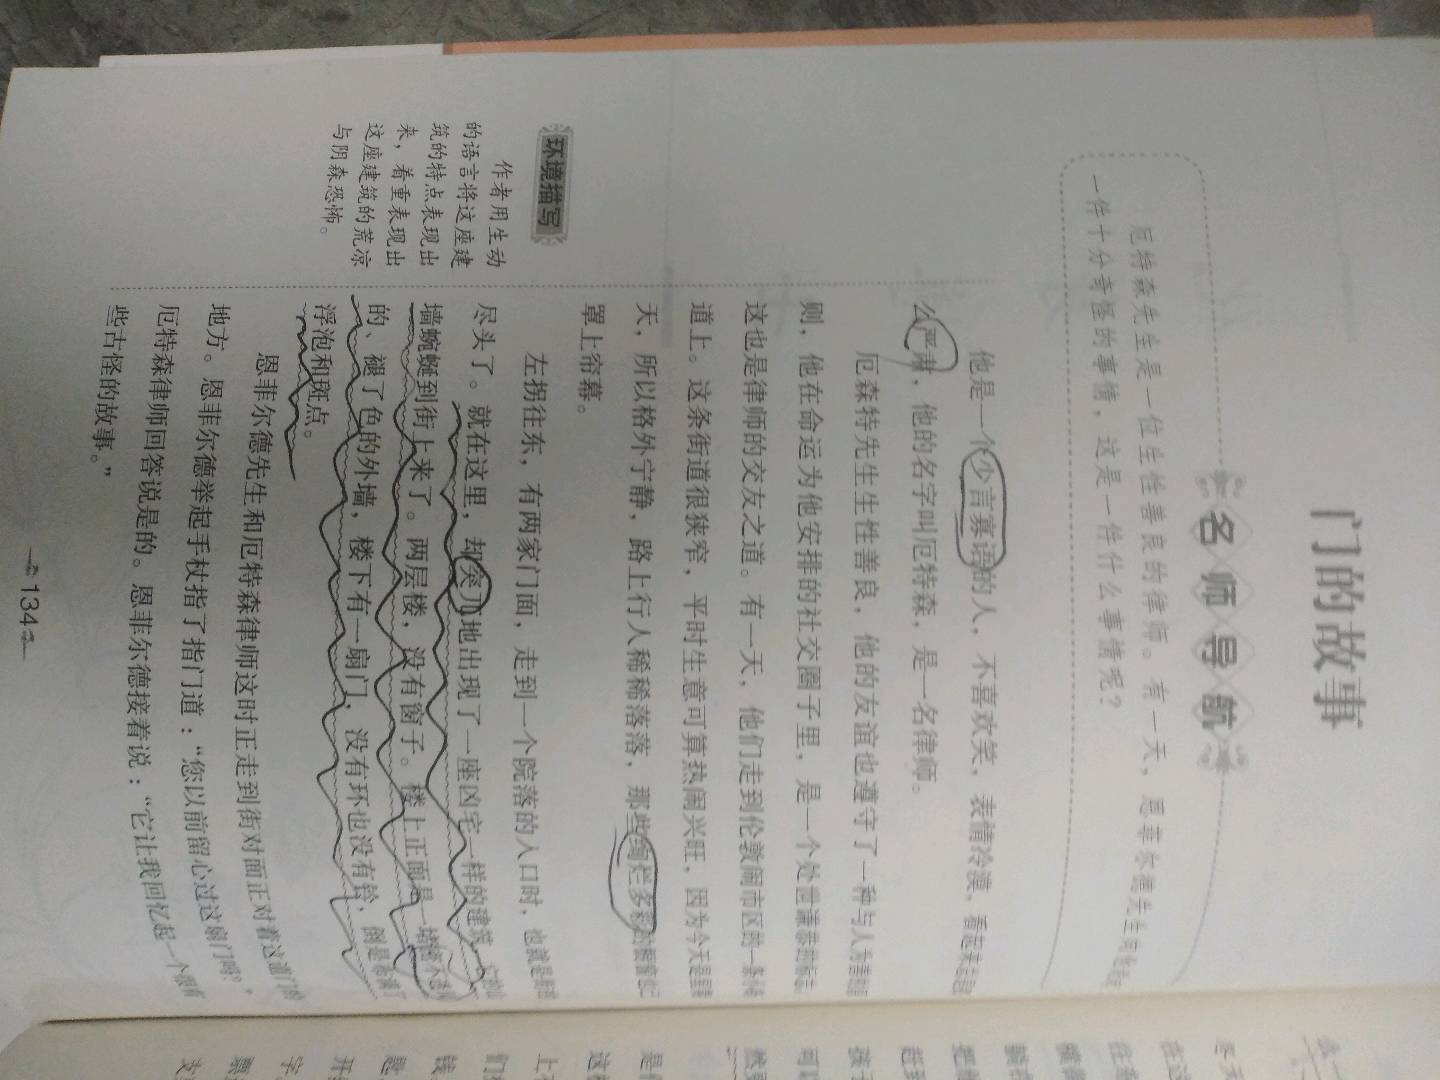 门的故事
名师导航
厄特森先生是一位生性善良的律师。有一天，恩菲尔德先生向他讲
一件十分奇怪的事情，这是一件什么事情呢？
他是一个少言寡语的人，不喜欢笑，表情冷漠，看起来总是
么严肃，他的名字叫厄特森，是一名律师。
厄森特先生生性善良，他的友谊也遵守了一种与人为善的
则，他在命运为他安排的社交圈子里，是一个处世谦恭的
这也是律师的交友之道。有一天，他们走到伦敦闹市区的一条
道上。这条街道很狭窄，平时生意可算热闹兴旺，因为今天是
天，所以格外宁静，路上行人稀稀落落，那些绚烂多彩的橱窗也
罩上帘幕。
左拐往东，有两家门面，走到一个院落的入口时，也就是
尽头了。就在这里，却突兀地出现了一座凶宅一样的建筑，
墙蜿蜒到街上来了。两层楼，没有窗子。楼上正面是一堵
的、褪了色的外墙，楼下有一扇门，没有环也没有铃，倒是
浮泡和斑点。
恩菲尔德先生和厄特森律师这时正走到街对面正对着这道门的
地方。恩菲尔德举起手杖指了指门道：“您以前留心过这扇门吗？”
厄特森律师回答说是的。恩菲尔德接着说：“它让我回忆起一个很有
些古怪的故事。”
环境描写
作者用生动
的语言将这座建
筑的特点表现出
来，着重表现出
这座建筑的荒凉
与阴森恐怖。
134